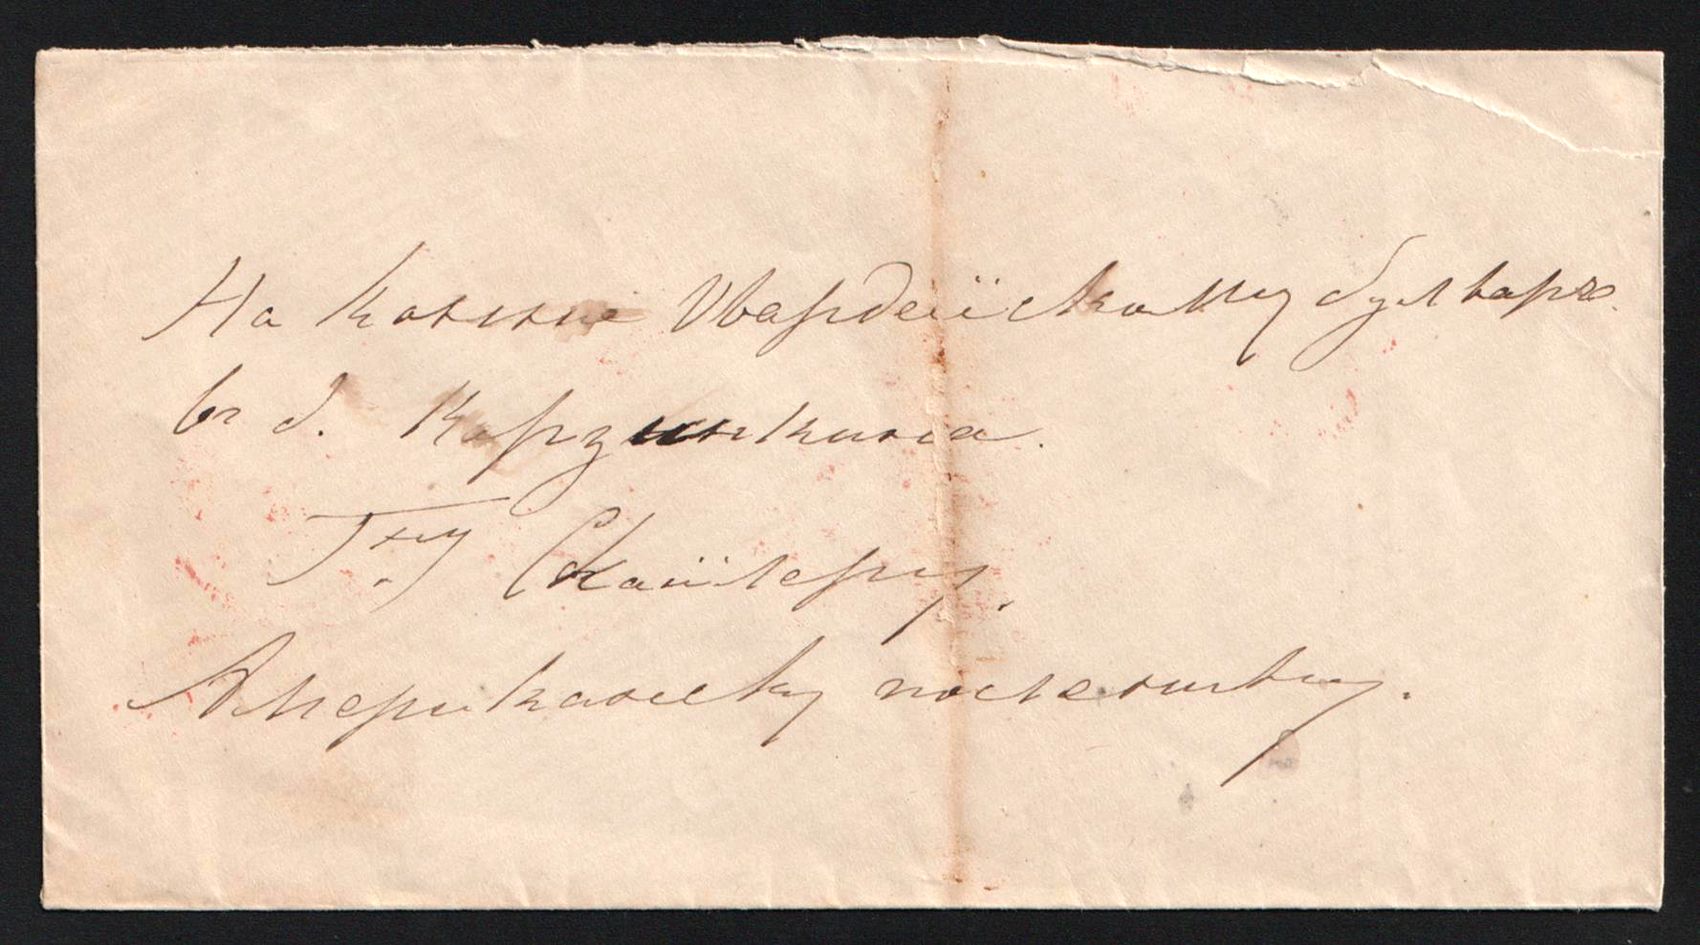 На Конно Гвардейскому бульварѣ.
въ д. Корзинкина.
Гну Скайлеру.
Американску посленнику.